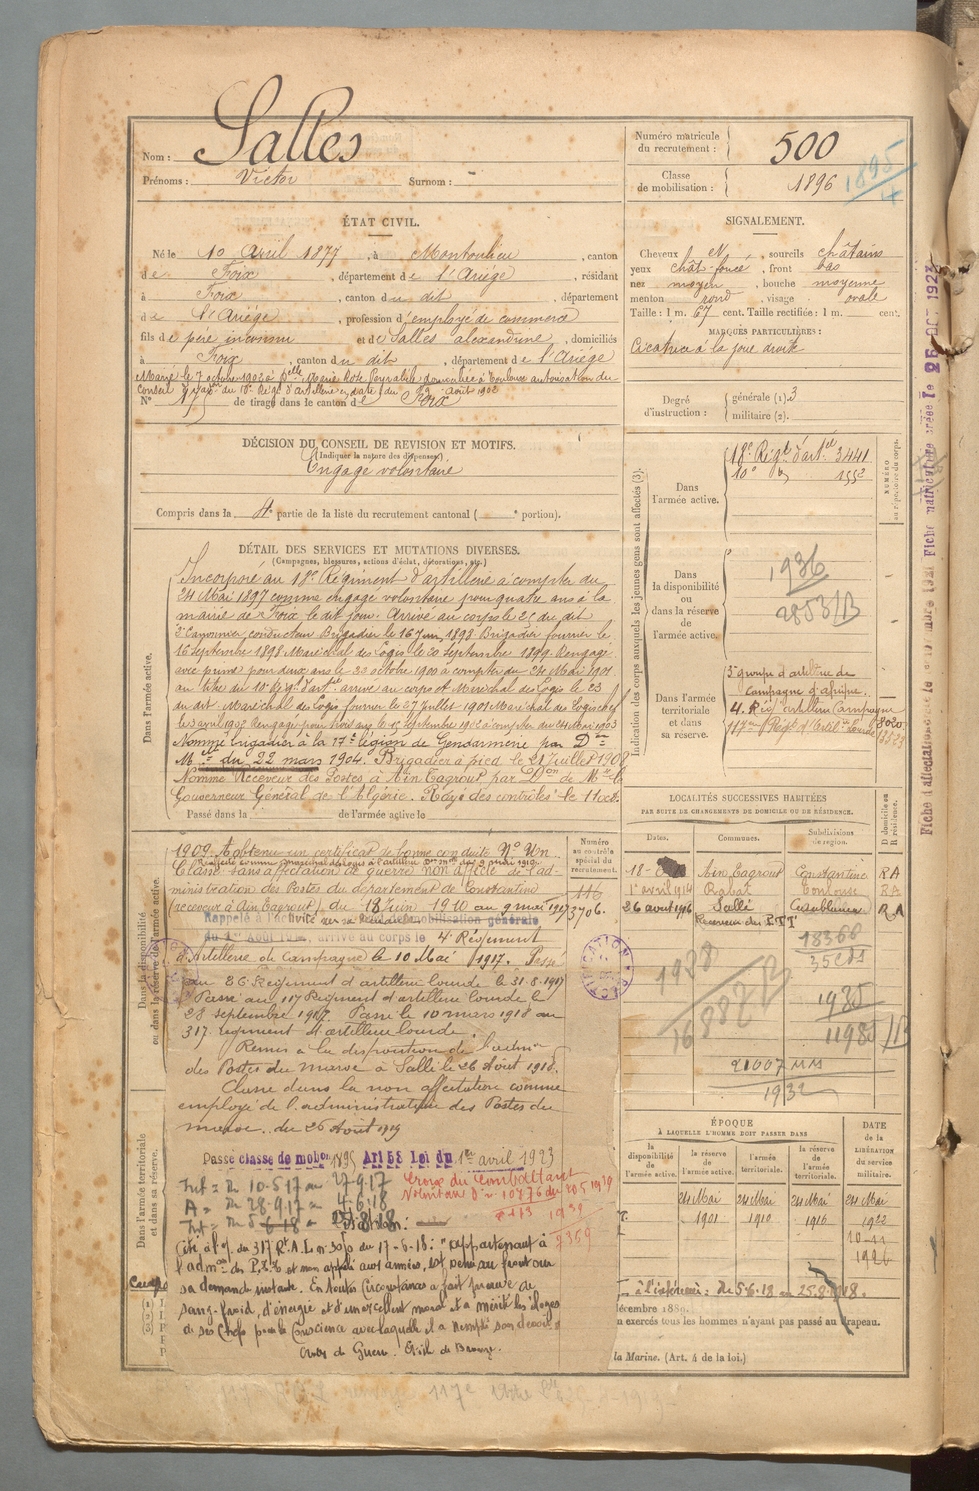 Nom : Salles
Prénoms : Victor Surnom : -
Numéro matricule du recrutement : 500
Classe de mobilisation : 1896
1895
4
ÉTAT CIVIL.
Né le 10 Avril 1877, à Montoulieu, canton
de Foix, département de l'Ariège, résidant
à Foix, canton du dit, département
de l'Ariège, profession d'employé de commerce
fils de père inconnu et de Salles Alexandrine, domiciliés
à Foix, canton du dit, département de l'Ariège
Marié le 7 octobre 1902 à Delle Marie Rose domiciliée à Toulouse autorisation du
Conseil d'artillerie en date du août 1902
N° de tirage dans le canton de Foix
SIGNALEMENT.
Cheveux N, sourcils châtains
yeux chât-foncé, front bas
nez moyen, bouche moyenne
menton rond, visage ovale
Taille : 1 m. 67 cent. Taille rectifiée : 1 m. cent.
MARQUES PARTICULIÈRES :
Cicatrice à la joue droite
Degré d'instruction : générale (1). 3
militaire (2).
DÉCISION DU CONSEIL DE REVISION ET MOTIFS.
(Indiquer la nature des dispenses)
Engagé volontaire
Compris dans la 4e partie de la liste du recrutement cantonal ( e portion).
DÉTAIL DES SERVICES ET MUTATIONS DIVERSES.
(Campagnes, blessures, actions d'éclat, décorations, etc.)
Dans l'armée active.
Incorporé au 18e Régiment d'artillerie à compter du
24 Mai 1897 comme engagé volontaire pour quatre ans à la
mairie de Foix le dit jour. Arrivé au corps le 25 du dit
2e Canonnier conducteur Brigadier le 16 juin 1898 Brigadier fourrier le
16 Septembre 1898 Maréchal des Logis le 20 Septembre 1899 Rengagé
avec prime pour deux ans le 23 octobre 1900 à compter du 24 Mai 1901
au titre du 10e Régt d'artie arrivé au corps et Maréchal des Logis le 23
du dit. Maréchal des Logis fourrier le 27 Juillet 1901 Maréchal des Logis chef
le 3 avril 1902 Rengagé pour trois ans le 15 Septembre 1902 à compter du 24 Mai 1903
Nommé brigadier à la 17e légion de Gendarmerie par Don
Mlle du 22 mars 1904. Brigadier à pied le 21 Juillet 1908
Nommé Receveur des Postes à Aïn Tagrout par Don de Mr le
Gouverneur Général de l'Algérie. Rayé des contrôles le 11 oct.
Passé dans la de l'armée active le
Dans la disponibilité ou dans la réserve de l'armée active.
1909. A obtenu un certificat de bonne conduite No Un
Classé sans affectation de guerre non affecté de l'ad-
ministration des Postes du département de Constantine
(receveur à Aïn Tagrout) du 18 Juin 1910 au 9 mai 1917
Rappelé à l'activité mobilisation générale
du 1er Août 1914, arrivé au corps le 4e Régiment
d'Artillerie de Campagne le 10 Mai 1917. Passé
au 36 Régiment d'artillerie lourde le 31.8.1917
Passé au 117 Régiment d'artillerie lourde le
28 septembre 1917. Passé le 10 mars 1918 au
317 régiment d'artillerie lourde.
Remis à la disposition de l'admon
des Postes du Maroc à Salli le 26 Août 1918.
Classé dans la non affectation comme
employé de l'administration des Postes du
Maroc. du 26 Août 1919
Passé classe de mobon 1895 Art 58 Loi du 1er avril 1923
Int = Du 10-5-17 au 27-9-17
A = Du 28-9-17 au 4-6-18
Int = Du 5-6-18 au 25-8-18
Croix du Combattant
Volontaire No 10776 du 20 5 1939
7359
Cité à l'O. du 317 Rt A.L. no 30/0 du 17-6-18 : "Appartenant à
l'admon des P.T.T. et non appelé aux armées, est venu au front sur
sa demande instante. En toutes circonstances a fait preuve de
sang-froid, d'énergie et d'un excellent moral et a mérité les éloges
de ses Chefs pour la conscience avec laquelle il a rempli son devoir"
Croix de Guerre. Étoile de Bronze.
Dans l'armée territoriale et dans sa réserve.
Numéro au contrôle spécial du recrutement.
116
3706.
Indication des corps auxquels les jeunes gens sont affectés (3).
NUMÉRO au répertoire du corps.
Dans l'armée active.
18e Régt d'artie 3441
10e do 1552
Dans la disponibilité ou dans la réserve de l'armée active.
1936
2853/B
Dans l'armée territoriale et dans sa réserve.
5e groupe d'artillerie de
Campagne d'Afrique
4e Régt artillerie Campagne 8020
117me Régt d'Artillie Lourde
LOCALITÉS SUCCESSIVES HABITÉES
PAR SUITE DE CHANGEMENTS DE DOMICILE OU DE RÉSIDENCE.
Dates. Communes. Subdivisions de région. D domicile ou R résidence.
18- Aïn Tagrout Constantine RA
1er avril 1914 Rabat Toulouse RA
26 août 1916 Salli Casablanca RA
Receveur des P.T.T
18366
1928
16887B
1935
11985/B
21007
1932
ÉPOQUE
À LAQUELLE L'HOMME DOIT PASSER DANS
la disponibilité de l'armée active.
la réserve de l'armée active.
l'armée territoriale.
la réserve de l'armée territoriale.
DATE de la LIBÉRATION du service militaire.
24 Mai 1901
24 Mai 1910
24 Mai 1916
24 Mai 1922
10-11
1926
à l'intérieur : du 5-6-18 au 25-8-18.
décembre 1889.
n exercés tous les hommes n'ayant pas passé au drapeau.
la Marine. (Art. 4 de la loi.)
117e
Fiche matricule créée le 25 OCT 1923